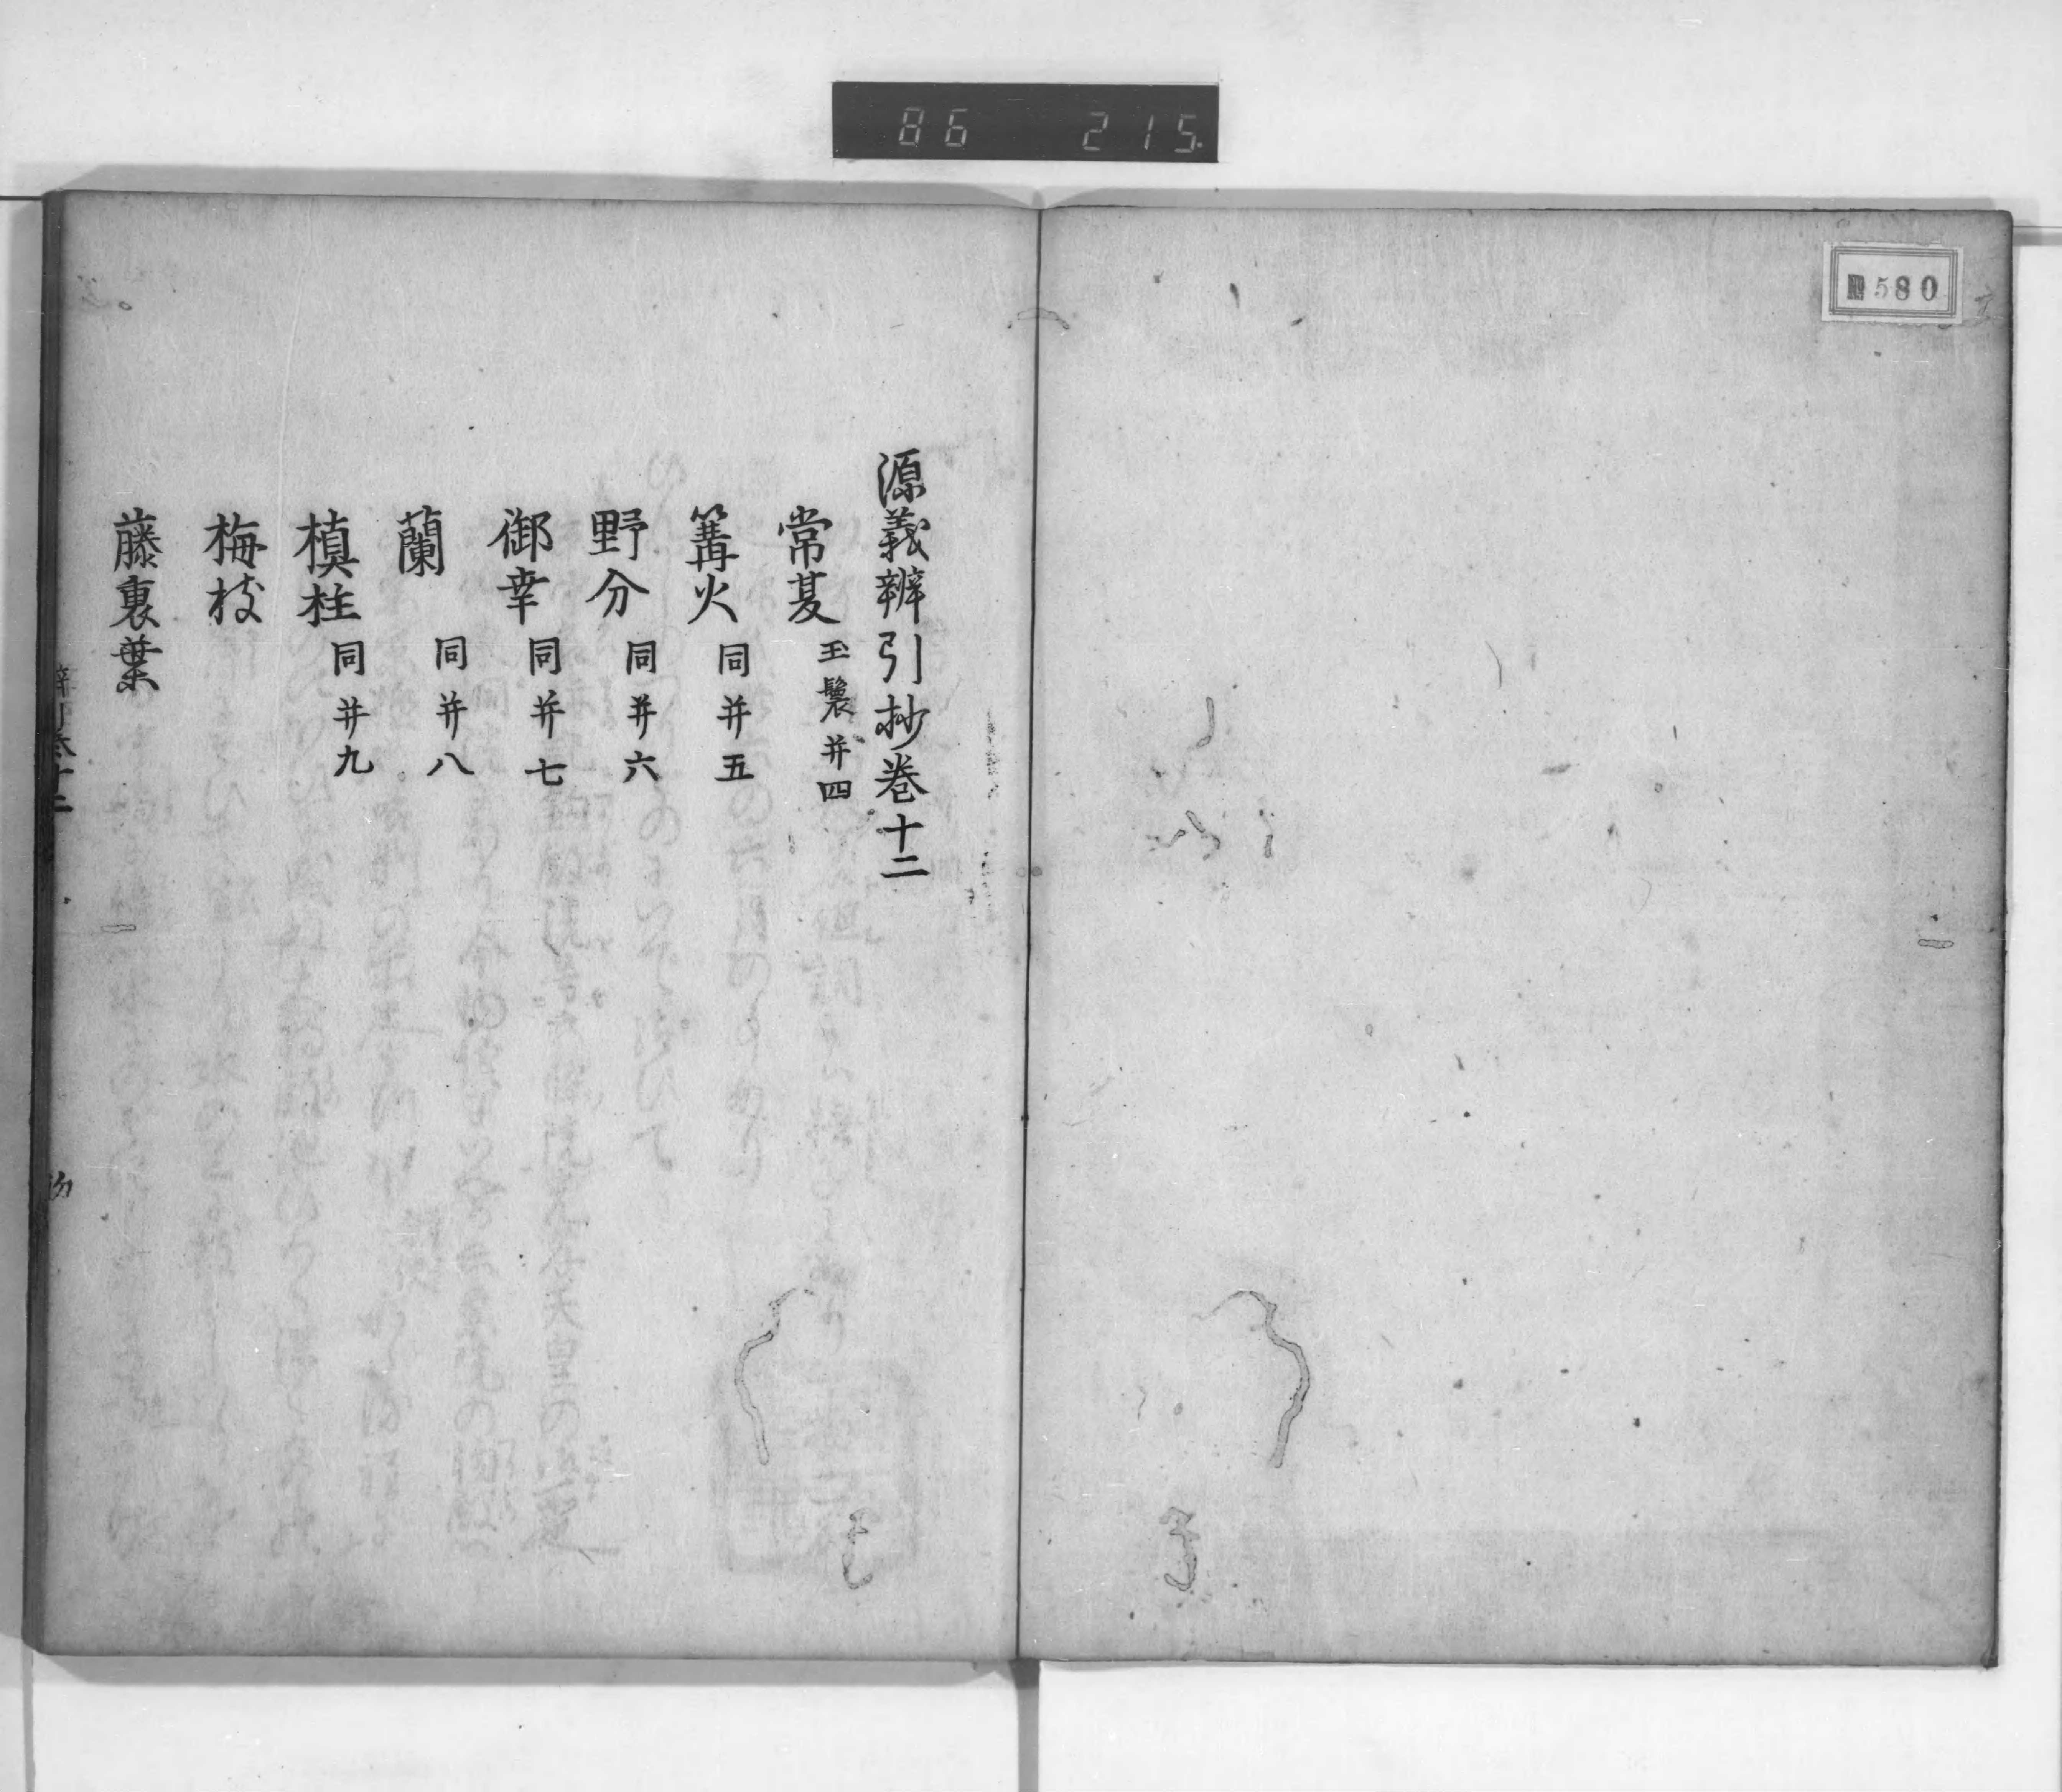 86 215
580
源義辨引抄巻十二
常夏 玉鬘并四
篝火 同并五
野分 同并六
御幸 同并七
蘭 同并八
槙柱 同并九
梅枝
藤裏葉